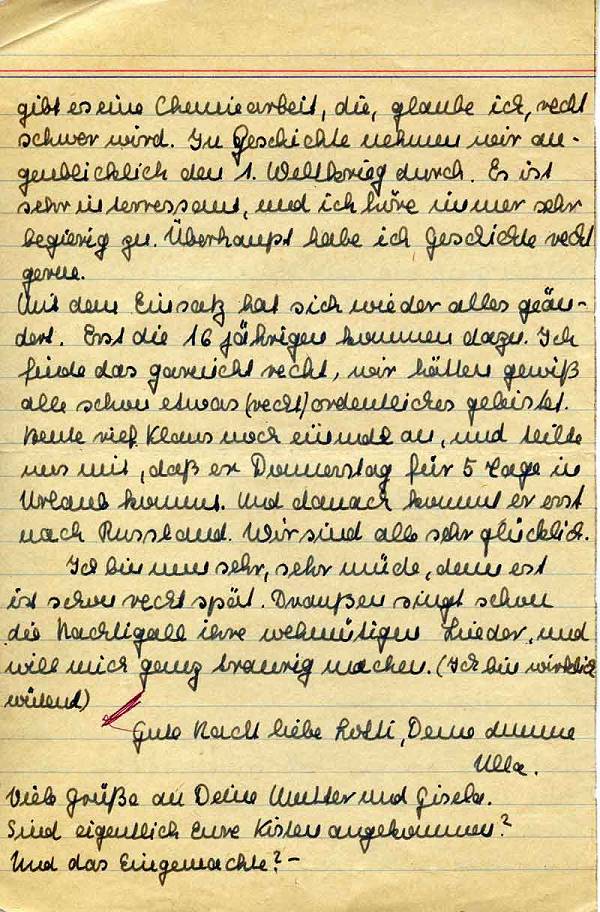 gibt es eine Chemiearbeit, die, glaube ich, recht
schwer wird. In Geschichte nehmen wir au-
genblicklich den 1. Weltkrieg durch. Es ist
sehr interressant, und ich höre immer sehr
begierig zu. Überhaupt habe ich Geschichte recht
gerne.
Mit dem Einsatz hat sich wieder alles geän-
dert. Erst die 16 jährigen kommen dazu. Ich
finde das garnicht recht, wir hätten gewiß
alle schon etwas (recht) ordentliches geleistet.
Heute rief Klaus noch einmal an, und teilte
uns mit, daß er Donnerstag für 5 Tage in
Urlaub kommt. Und danach kommt er erst
nach Russland. Wir sind alle sehr glücklich.
Ich bin nun sehr, sehr müde, denn est
ist schon recht spät. Draußen singt schon
die Nachtigall ihre wehmütigen Lieder, und
will mich ganz traurig machen. (Ich bin wirklich
wütend)
Gute Nacht liebe Lotti, Deine dumme
Ulla.
Viele Grüße an Deine Mutter und Gisela.
Sind eigentlich Eure Kisten angekommen?
Und das Eingemachte? –